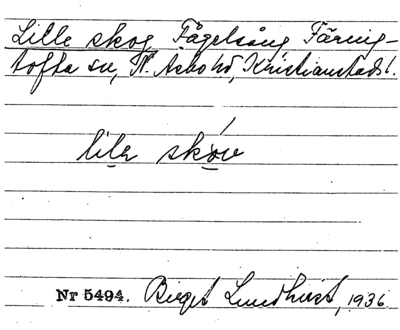 Lille skog Fågelsång Färing-
tofta sn, N. Åsbo hd, Kristianstads l.
lilə skóv
Nr 5494. Birgit Lundkvist, 1936